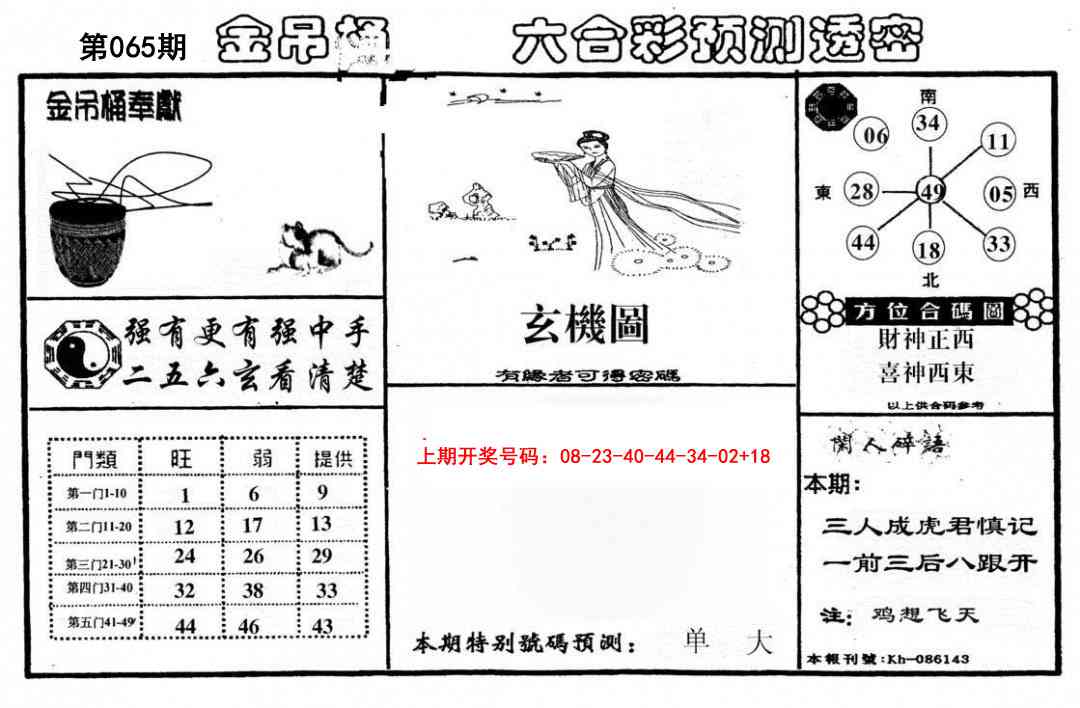 第065期 金吊桶 六合彩预测透密
金吊桶奉獻
强有更有强中手
二五六玄看清楚
門類 旺 弱 提供
第一门1-10 1 6 9
第二门11-20 12 17 13
第三门21-30 24 26 29
第四门31-40 32 38 33
第五门41-49 44 46 43
玄機圖
有緣者可得密碼
上期开奖号码：08-23-40-44-34-02+18
本期特别號碼預测： 单 大
南
06 34 11
東 28 49 05 西
44 18 33
北
方位合碼圖
財神正西
喜神西東
以上供合码参考
閑人碎語
本期：
三人成虎君慎记
一前三后八跟开
注：鸡想飞天
本報刊號：Kh-086143